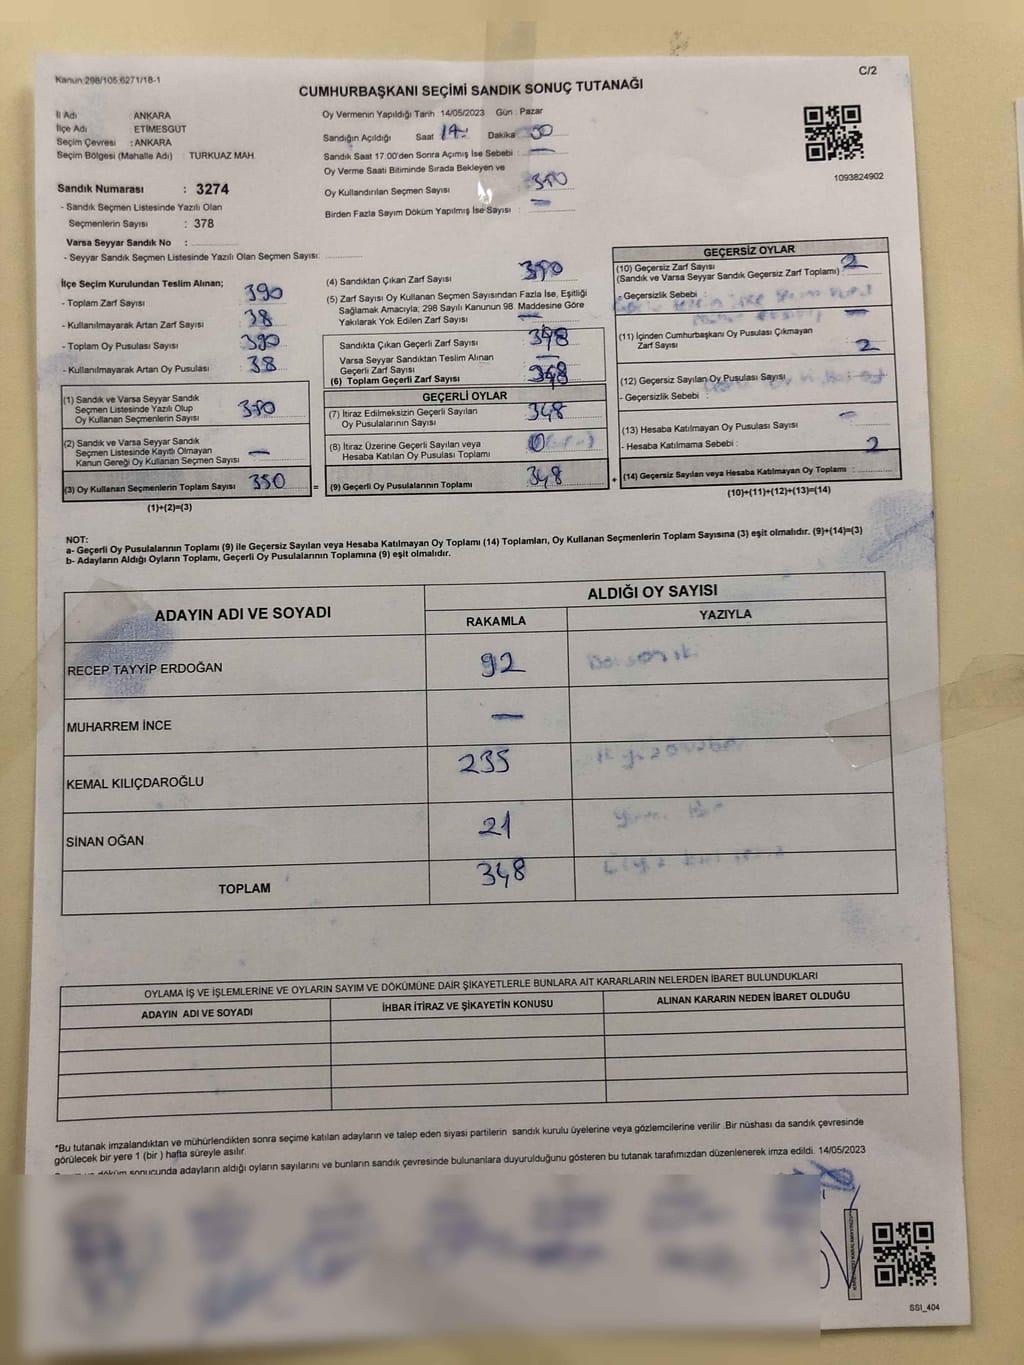 Kanun 298/105 6271/18-1
C/2
CUMHURBAŞKANI SEÇİMİ SANDIK SONUÇ TUTANAĞI
İl Adı ANKARA
İlçe Adı ETİMESGUT
Seçim Çevresi : ANKARA
Seçim Bölgesi (Mahalle Adı) : TURKUAZ MAH.
Sandık Numarası : 3274
- Sandık Seçmen Listesinde Yazılı Olan
Seçmenlerin Sayısı : 378
Varsa Seyyar Sandık No :
- Seyyar Sandık Seçmen Listesinde Yazılı Olan Seçmen Sayısı:
Oy Vermenin Yapıldığı Tarih : 14/05/2023 Gün : Pazar
Sandığın Açıldığı Saat Dakika
Sandık Saat 17.00'den Sonra Açımış İse Sebebi : —
Oy Verme Saati Bitiminde Sırada Bekleyen ve
Oy Kullandırılan Seçmen Sayısı
Birden Fazla Sayım Döküm Yapılmış İse Sayısı : —
1093824902
İlçe Seçim Kurulundan Teslim Alınan;
- Toplam Zarf Sayısı : 390
- Kullanılmayarak Artan Zarf Sayısı : 38
- Toplam Oy Pusulası Sayısı : 390
- Kullanılmayarak Artan Oy Pusulası : 38
(1) Sandık ve Varsa Seyyar Sandık
Seçmen Listesinde Yazılı Olup
Oy Kullanan Seçmenlerin Sayısı
(2) Sandık ve Varsa Seyyar Sandık
Seçmen Listesinde Kayıtlı Olmayan
Kanun Gereği Oy Kullanan Seçmen Sayısı —
(3) Oy Kullanan Seçmenlerin Toplam Sayısı 350
(1)+(2)=(3)
(4) Sandıktan Çıkan Zarf Sayısı
(5) Zarf Sayısı Oy Kullanan Seçmen Sayısından Fazla İse, Eşitliği
Sağlamak Amacıyla; 298 Sayılı Kanunun 98. Maddesine Göre
Yakılarak Yok Edilen Zarf Sayısı —
Sandıkta Çıkan Geçerli Zarf Sayısı 348
Varsa Seyyar Sandıktan Teslim Alınan
Geçerli Zarf Sayısı —
(6) Toplam Geçerli Zarf Sayısı 348
GEÇERLİ OYLAR
(7) İtiraz Edilmeksizin Geçerli Sayılan
Oy Pusulalarının Sayısı 348
(8) İtiraz Üzerine Geçerli Sayılan veya
Hesaba Katılan Oy Pusulası Toplamı 0
= (9) Geçerli Oy Pusulalarının Toplamı 348
GEÇERSİZ OYLAR
(10) Geçersiz Zarf Sayısı 2
(Sandık ve Varsa Seyyar Sandık Geçersiz Zarf Toplamı)
- Geçersizlik Sebebi :
(11) İçinden Cumhurbaşkanı Oy Pusulası Çıkmayan
Zarf Sayısı —
2
(12) Geçersiz Sayılan Oy Pusulası Sayısı
- Geçersizlik Sebebi :
(13) Hesaba Katılmayan Oy Pusulası Sayısı —
- Hesaba Katılmama Sebebi : 2
+ (14) Geçersiz Sayılan veya Hesaba Katılmayan Oy Toplamı :
(10)+(11)+(12)+(13)=(14)
NOT:
a- Geçerli Oy Pusulalarının Toplamı (9) ile Geçersiz Sayılan veya Hesaba Katılmayan Oy Toplamı (14) Toplamları, Oy Kullanan Seçmenlerin Toplam Sayısına (3) eşit olmalıdır. (9)+(14)=(3)
b- Adayların Aldığı Oyların Toplamı, Geçerli Oy Pusulalarının Toplamına (9) eşit olmalıdır.
ADAYIN ADI VE SOYADI
ALDIĞI OY SAYISI
RAKAMLA YAZIYLA
RECEP TAYYİP ERDOĞAN 92
MUHARREM İNCE —
KEMAL KILIÇDAROĞLU 235
SİNAN OĞAN 21
TOPLAM 348
OYLAMA İŞ VE İŞLEMLERİNE VE OYLARIN SAYIM VE DÖKÜMÜNE DAİR ŞİKAYETLERLE BUNLARA AİT KARARLARIN NELERDEN İBARET BULUNDUKLARI
ADAYIN ADI VE SOYADI İHBAR İTİRAZ VE ŞİKAYETİN KONUSU ALINAN KARARIN NEDEN İBARET OLDUĞU
*Bu tutanak imzalandıktan ve mühürlendikten sonra seçime katılan adayların ve talep eden siyasi partilerin sandık kurulu üyelerine veya gözlemcilerine verilir. Bir nüshası da sandık çevresinde
görülecek bir yere 1 (bir ) hafta süreyle asılır.
döküm sonucunda adayların aldığı oyların sayılarını ve bunların sandık çevresinde bulunanlara duyurulduğunu gösteren bu tutanak tarafımızdan düzenlenerek imza edildi. 14/05/2023
SSI_404